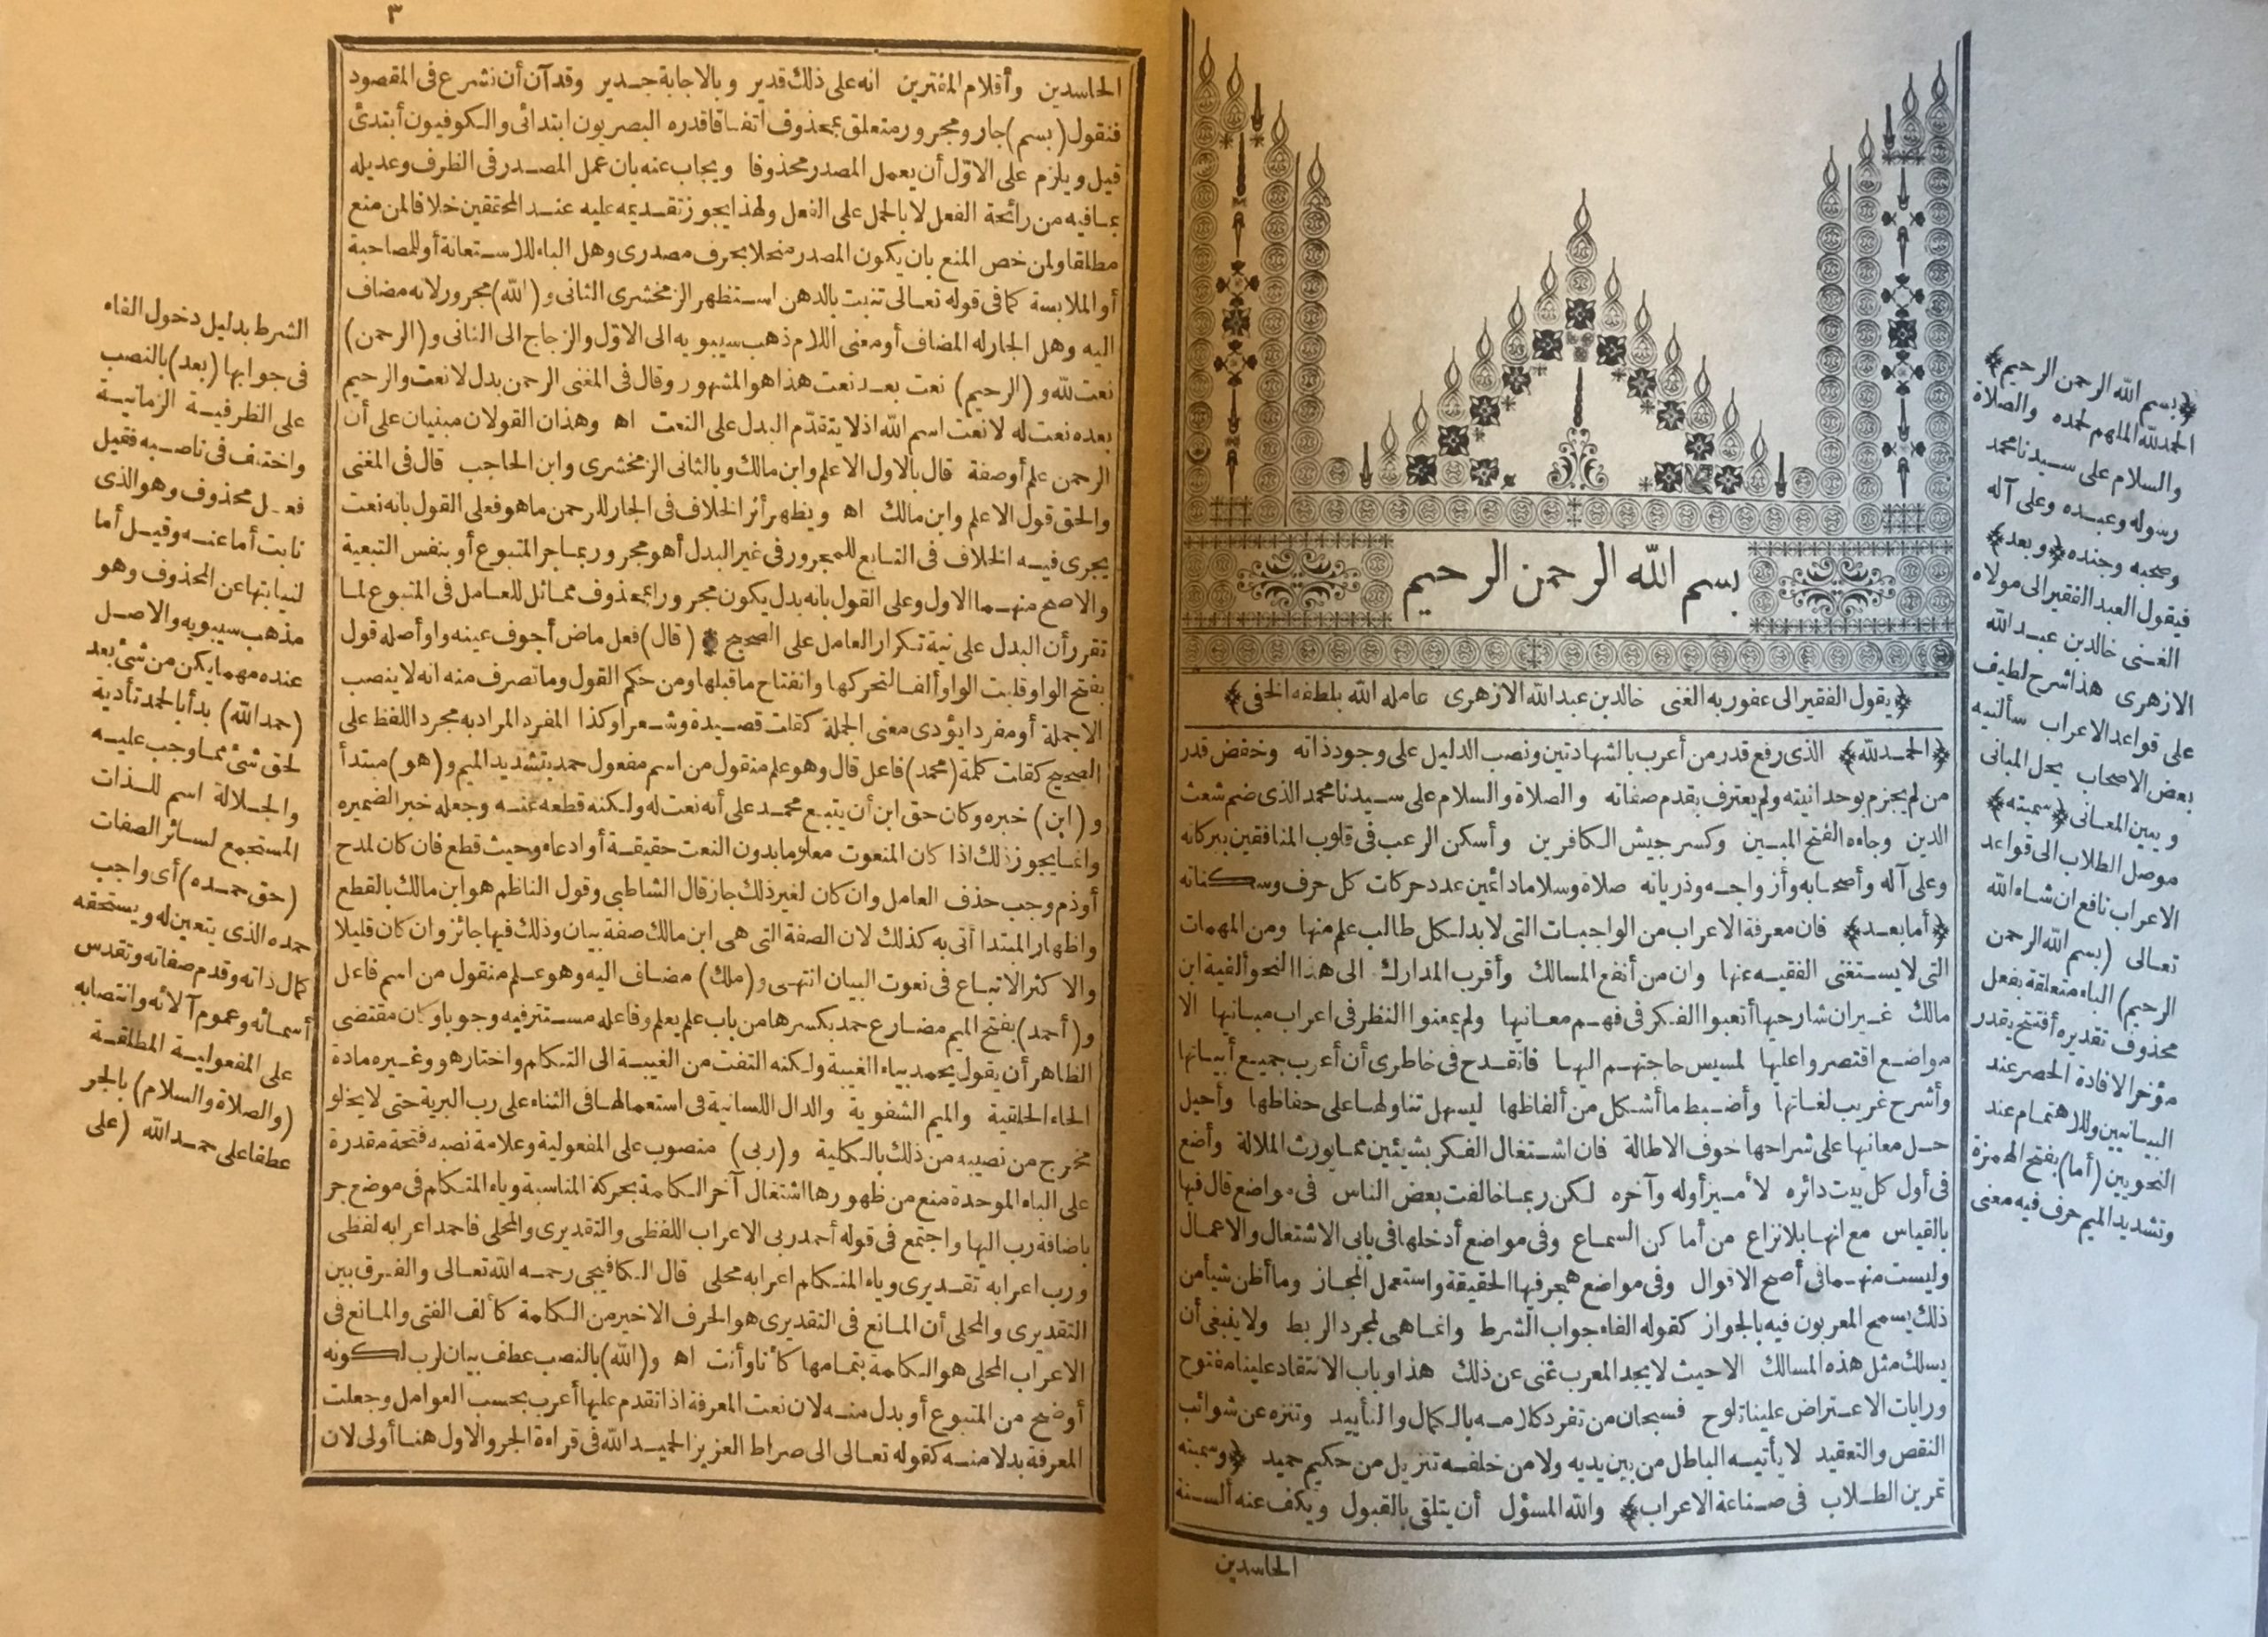 بسم الله الرحمن الرحيم
﴿يقول الفقير الى عفو ربه الغنى خالد بن عبد الله الازهرى عامله الله بلطفه الخفى﴾
﴿الحمد لله﴾ الذى رفع قدر من أعرب بالشهادتين ونصب الدليل على وجود ذاته وخفض قدر
من لم يجزم بوحدانيته ولم يعترف بقدم صفاته والصلاة والسلام على سيدنا محمد الذى ضم شعث
الدين وجاءه الفتح المبين وكسر جيش الكافرين وأسكن الرعب فى قلوب المنافقين ببركاته
وعلى آله وأصحابه وأزواجه وذرياته صلاة وسلاما دائمين عدد حركات كل حرف وسكناته
﴿أما بعد﴾ فان معرفة الاعراب من الواجبات التى لا بد لكل طالب علم منها ومن المهمات
التى لا يستغنى الفقيه عنها وان من أنفع المسالك وأقرب المدارك الى هذا النحو ألفية ابن
مالك غير ان شارحيها أتعبوا الفكر فى فهم معانيها ولم يمعنوا النظر فى اعراب مبانيها الا
مواضع اقتصروا عليها لمسيس حاجتهم اليها فانقدح فى خاطرى أن أعرب جميع أبياتها
وأشرح غريب لغاتها وأضبط ما أشكل من ألفاظها ليسهل تناولها على حفاظها وأحيل
حل معانيها على شراحها خوف الاطالة فان اشتغال الفكر بشيئين مما يورث الملالة وأضع
فى أول كل بيت دائره لأميز أوله وآخره لكن ربما خالفت بعض الناس فى مواضع قال فيها
بالقياس مع انها بلا نزاع من أماكن السماع وفى مواضع أدخلها فى بابى الاشتغال والاعمال
وليست منهما فى أصح الاقوال وفى مواضع هجر فيها الحقيقة واستعمل المجاز وما أظن شيأ من
ذلك يسمح المعربون فيه بالجواز كقوله الفاء جواب الشرط وانما هى لمجرد الربط ولا ينبغى أن
يسلك مثل هذه المسالك الا حيث لا يجد المعرب غنى عن ذلك هذا وباب الانتقاد علينا مفتوح
ورايات الاعتراض علينا تلوح فسبحان من تفرد كلامه بالكمال والتأييد وتنزه عن شوائب
النقص والتعقيد لا يأتيه الباطل من بين يديه ولا من خلفه تنزيل من حكيم حميد ﴿وسميته
تمرين الطلاب فى صناعة الاعراب﴾ والله المسؤل أن يتلقى بالقبول ويكف عنه ألسنة
الحاسدين
﴿بسم الله الرحمن الرحيم﴾
الحمد لله الملهم لحمده والصلاة
والسلام على سيدنا محمد
رسوله وعبده وعلى آله
وصحبه وجنده ﴿وبعد﴾
فيقول العبد الفقير الى مولاه
الغنى خالد بن عبد الله
الازهرى هذا شرح لطيف
على قواعد الاعراب سألنيه
بعض الاصحاب يحل المبانى
ويبين المعانى ﴿سميته﴾
موصل الطلاب الى قواعد
الاعراب نافع ان شاء الله
تعالى (بسم الله الرحمن
الرحيم) الباء متعلقة بفعل
محذوف تقديره أفتتح يقدر
مؤخر الافادة الحصر عند
البيانيين وللاهتمام عند
النحويين (أما) بفتح الهمزة
وتشديد الميم حرف فيه معنى
٣
الحاسدين وأقلام المفترين انه على ذلك قدير وبالاجابة جدير وقد آن أن نشرع فى المقصود
فنقول (بسم) جار ومجرور متعلق بمحذوف اتفاقا قدره البصريون ابتدائى والكوفيون أبتدئ
قيل ويلزم على الاوّل أن يعمل المصدر محذوفا ويجاب عنه بان عمل المصدر فى الظرف وعديله
بما فيه من رائحة الفعل لا بالحمل على الفعل ولهذا يجوز تقديمه عليه عند المحققين خلافا لمن منع
مطلقا ولمن خص المنع بان يكون المصدر منحلا بحرف مصدرى وهل الباء للاستعانة أو للمصاحبة
أو الملابسة كما فى قوله تعالى تنبت بالدهن استظهر الزمخشرى الثانى و(الله) مجرور لانه مضاف
اليه وهل الجار له المضاف أو معنى اللام ذهب سيبويه الى الاوّل والزجاج الى الثانى و(الرحمن)
نعت لله و (الرحيم) نعت بعد نعت هذا هو المشهور وقال فى المغنى الرحمن بدل لا نعت والرحيم
بعده نعت له لا نعت اسم الله اذ لا يتقدّم البدل على النعت اه وهذان القولان مبنيان على أن
الرحمن علم أو صفة قال بالاول الاعلم وابن مالك وبالثانى الزمخشرى وابن الحاجب قال فى المغنى
والحق قول الاعلم وابن مالك اه ويظهر أثر الخلاف فى الجار للرحمن ما هو فعلى القول بانه نعت
يجرى فيه الخلاف فى التابع للمجرور فى غير البدل أهو مجرور بما جر المتبوع أو بنفس التبعية
والاصح منهما الاول وعلى القول بانه بدل يكون مجرورا بمحذوف مماثل للعامل فى المتبوع لما
تقرر أن البدل على نية تكرار العامل على الصحيح (قال) فعل ماض أجوف عينه واو أصله قول
بفتح الواو قلبت الواو ألفا لتحركها وانفتاح ما قبلها ومن حكم القول وما تصرف منه انه لا ينصب
الا جملة أو مفردا يؤدى معنى الجملة كقلت قصيدة وشعرا وكذا المفرد المراد به مجرد اللفظ على
الصحيح كقلت كلمة (محمد) فاعل قال وهو علم منقول من اسم مفعول حمد بتشديد الميم و(هو) مبتدأ
و (ابن) خبره وكان حق ابن أن يتبع محمد على أنه نعت له ولكنه قطعه عنه وجعله خبر الضميره
وانما يجوز ذلك اذا كان المنعوت معلوما بدون النعت حقيقة أو ادعاء وحيث قطع فان كان لمدح
أو ذم وجب حذف العامل وان كان لغير ذلك جاز قال الشاطبى وقول الناظم هو ابن مالك بالقطع
واظهار المبتدا أتى به كذلك لان الصفة التى هى ابن مالك صفة بيان وذلك فيها جائز وان كان قليلا
والاكثر الاتباع فى نعوت البيان انتهى و(ملك) مضاف اليه وهو علم منقول من اسم فاعل
و(أحمد) بفتح الميم مضارع حمد بكسرها من باب علم يعلم وفاعله مستتر فيه وجوبا وكان مقتضى
الظاهر أن يقول يحمد بياء الغيبة ولكنه التفت من الغيبة الى التكلم واختار هو وغيره مادة
الحاء الحلقية والميم الشفوية والدال اللسانية فى استعمالها فى الثناء على رب البرية حتى لا يخلو
مخرج من نصيبه من ذلك بالكلية و(ربى) منصوب على المفعولية وعلامة نصبه فتحة مقدرة
على الباء الموحدة منع من ظهورها اشتغال آخر الكلمة بحركة المناسبة وياء المتكلم فى موضع جر
باضافة رب اليها واجتمع فى قوله أحمد ربى الاعراب اللفظى والتقديرى والمحلى فاحمد اعرابه لفظى
ورب اعرابه تقديرى وياء المتكلم اعرابه محلى قال الكافيجى رحمه الله تعالى والفرق بين
التقديرى والمحلى أن المانع فى التقديرى هو الحرف الاخير من الكلمة كألف الفتى والمانع فى
الاعراب المحلى هو الكلمة بتمامها كأنا وأنت اه و(الله) بالنصب عطف بيان لرب لكونه
أوضح من المتبوع أو بدل منه لان نعت المعرفة اذا تقدم عليها أعرب بحسب العوامل وجعلت
المعرفة بدلا منه كقوله تعالى الى صراط العزيز الحميد الله فى قراءة الجر والاول هنا أولى لان
الشرط بدليل دخول الفاء
فى جوابها (بعد) بالنصب
على الظرفية الزمانية
واختلف فى ناصبه فقيل
فعل محذوف وهو الذى
نابت أما عنه وقيل أما
لنيابتها عن المحذوف وهو
مذهب سيبويه والاصل
عنده مهما يكن من شئ بعد
(حمد الله) بدأ بالحمد تأدية
لحق شئ مما وجب عليه
والجلالة اسم للذات
المستجمع لسائر الصفات
(حق حمده) أى واجب
حمده الذى يتعين له ويستحقه
كمال ذاته وقدم صفاته وتقدس
أسمائه وعموم آلائه وانتصابه
على المفعولية المطلقة
(والصلاة والسلام) بالجر
عطفا على حمد الله (على